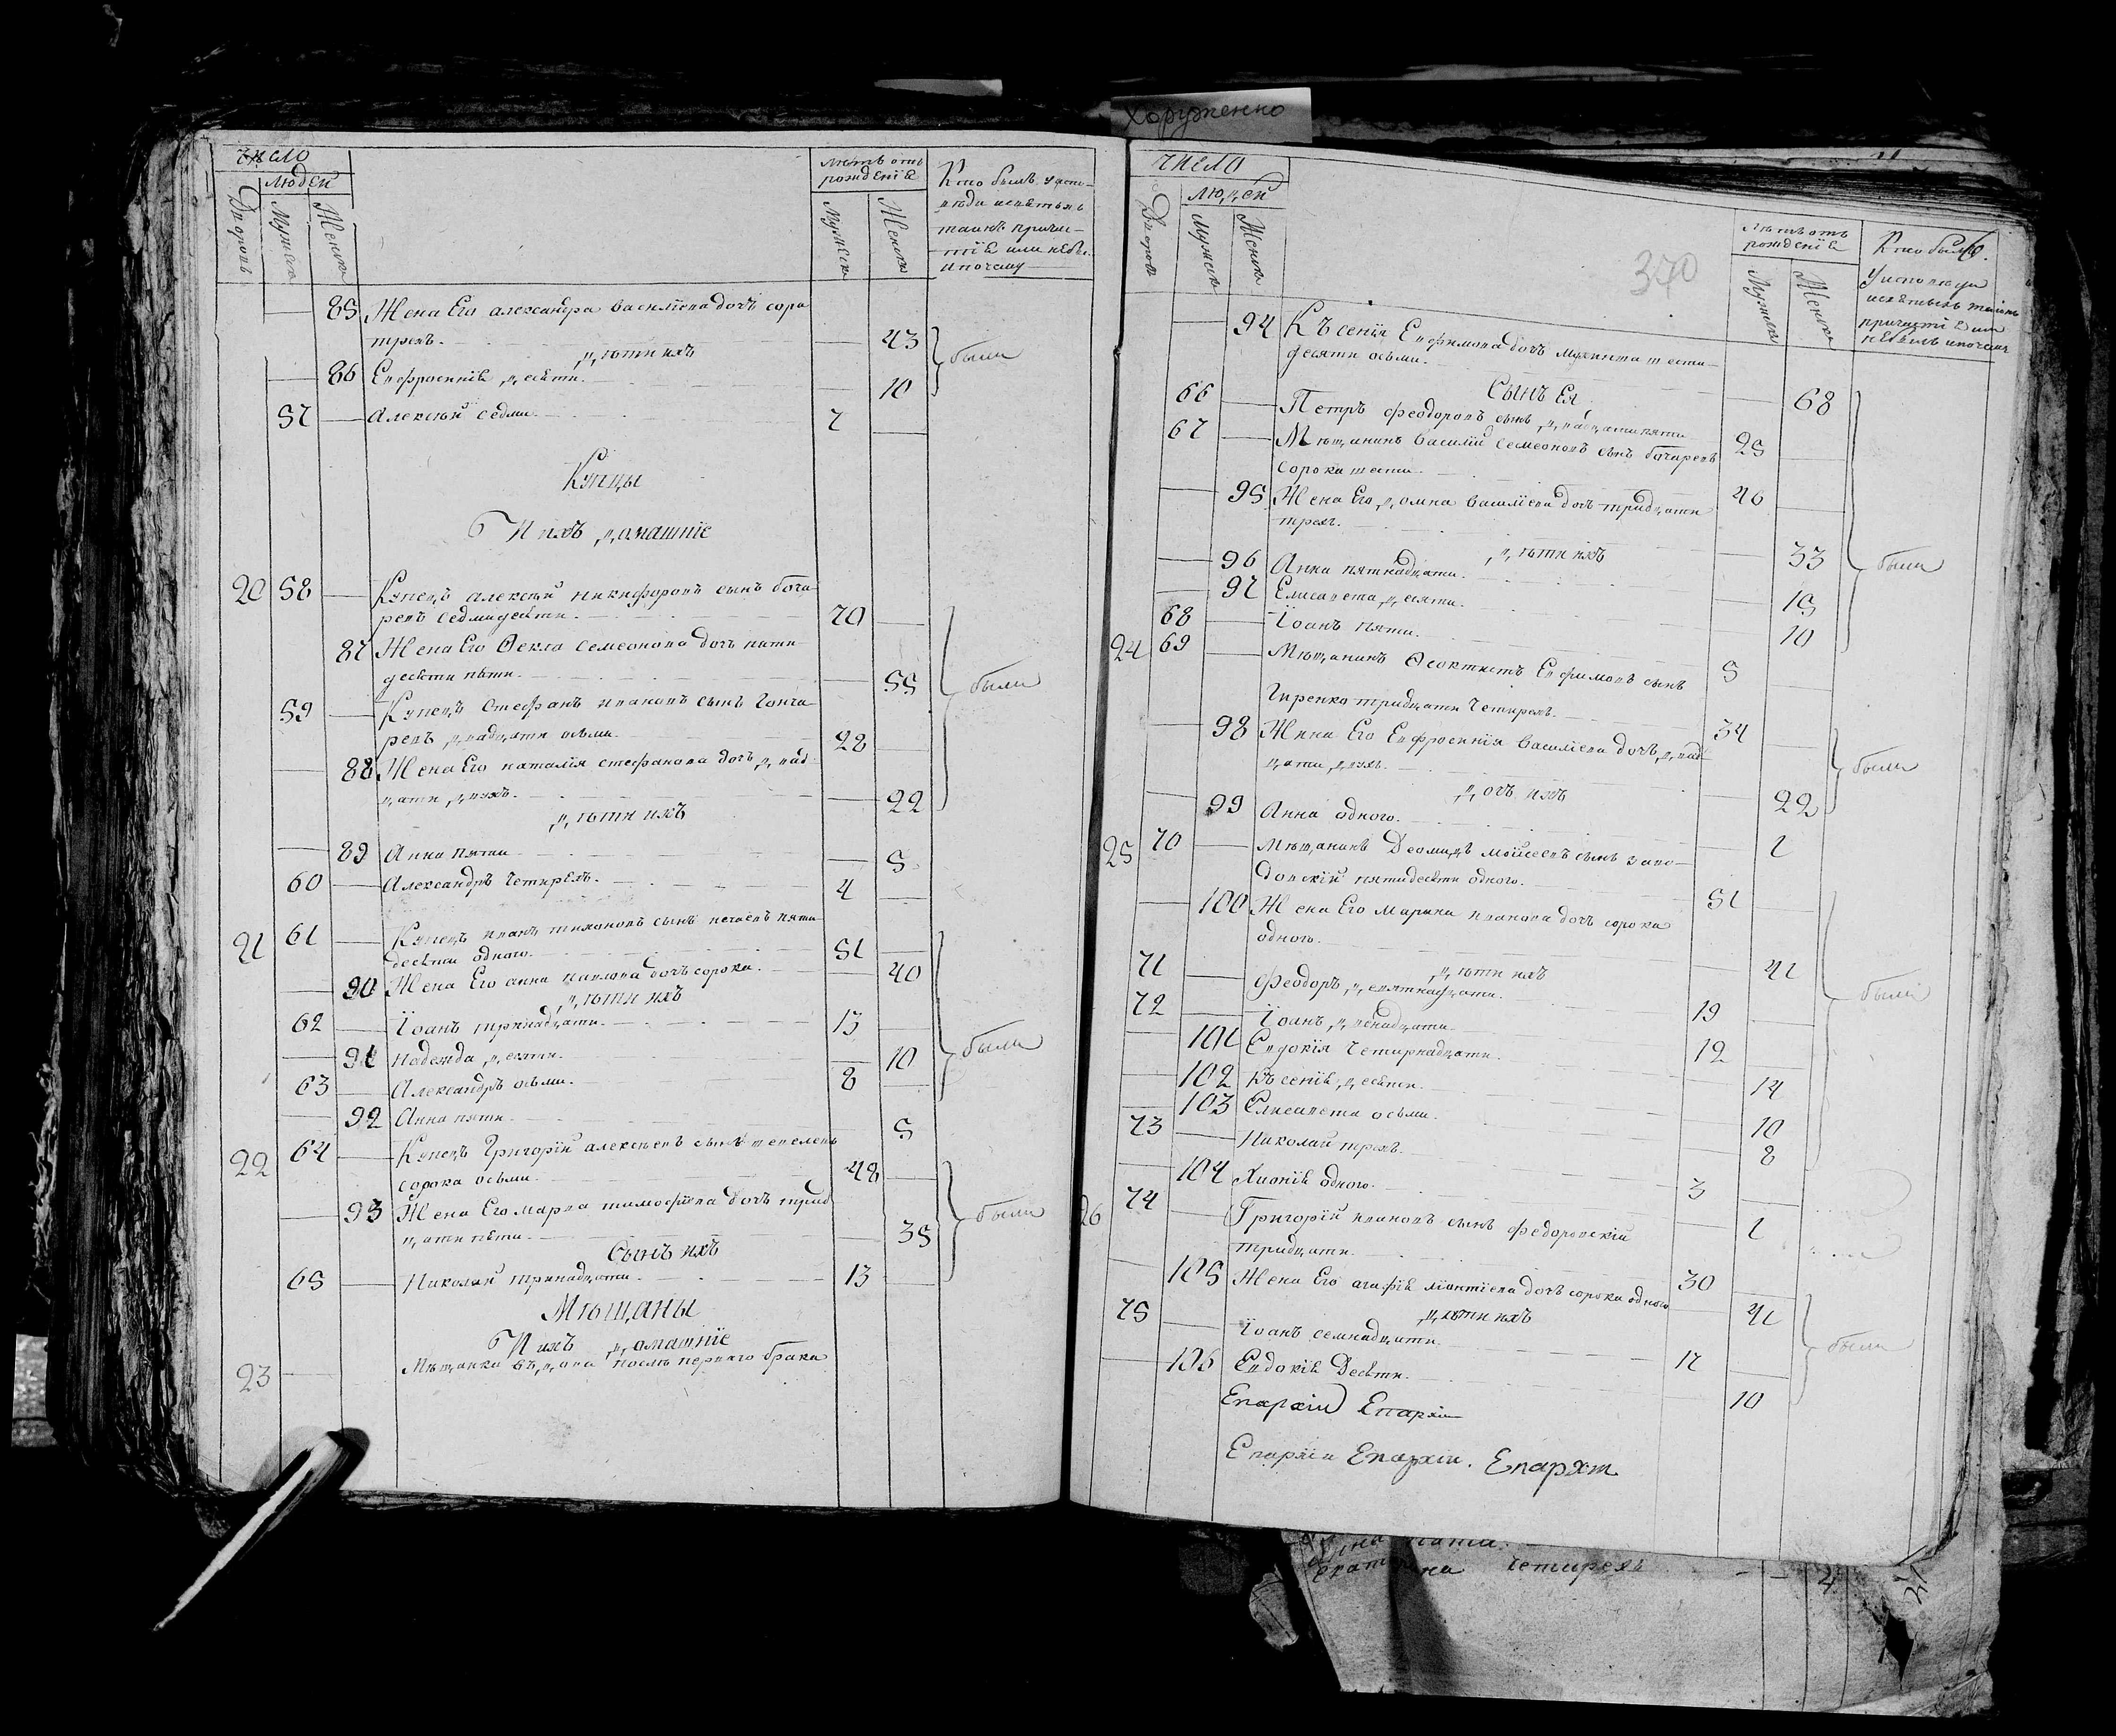 Хоруженко
число
людей
Дворовъ
Мужеска
Женска
лѣтъ отъ
рожденїя
Мужеска
Женска
Кто былъ у испо-
вѣди и святыхъ
таинъ причас-
тїя или небы.
и почему
85 Жена Его александра василїева дочь соро
трехъ. 43
дѣти ихъ
были
86 Евфросинїя десяти. 10
57 Алексѣй седми. 7
Купцы
И ихъ домашнїе
20 58 Купецъ алексѣй никифоровъ сынъ боча
ревъ седмидесяти. 70
87 Жена Его Ѳекла семеонова дочь пяти
десяти пяти. 55
были
59 Купецъ стефанъ ивановъ сынъ гонча
ревъ двадцати осьми. 28
88 Жена Его наталїя стефанова дочь двад
цати двухъ. 22
дѣти ихъ
89 Анна пяти 5
60 Александръ четирехъ. 4
21 61 Купецъ иванъ тихоновъ сынъ нечаевъ пяти
десяти одного. 51
90 Жена Его анна павлова дочь сорока. 40
дѣти ихъ
62 Їоанъ тринадцати. 13
91 Надежда десяти. 10
были
63 Александръ осьми. 8
92 Анна пяти 5
22 64 Купецъ Григорїй алексѣевъ сынъ шевелевъ
сорока осьми. 48
93 Жена Его марѳа тимофїева дочь трид
цати пяти. 35
были
Сынъ ихъ
65 Николай тринадцати. 13
Мѣщаны
И ихъ домашнїе
23 Мѣщанка вдова послѣ перваго брака
число
людей
Дворовъ
Мужеска
Женска
370
лѣтъ отъ
рожденїя
Мужеска
Женска
Кто былъ
У исповѣди
и святыхъ таинъ
причастїя или
небылъ и почему
94 Къ сенїя Евфимова дочь шести
десяти осьми. 68
Сынъ Ея
66 Петръ феодоровъ сынъ двадцати пяти 25
67 Мѣщанинъ василїй семеоновъ сынъ бочаревъ
сорока шести. 46
95 Жена Его домна василїева дочь тридцати
трехъ. 33
дѣти ихъ
были
96 Анна пятнадцати. 15
97 Елисавета десяти. 10
68 Їоанъ пяти. 5
24 69 Мѣщанинъ Ѳеоктистъ Евфимовъ сынъ
Гиренко тридцати четирехъ. 34
98 Жена Его Евфросинїя василїева дочь двад
цати двухъ. 22
были
дочь ихъ
99 Анна одного. 1
25 70 Мѣщанинъ Деомидъ мойсеевъ сынъ заво-
довскїй пятидесяти одного. 51
100 Жена Его Марина иванова дочь сорока
одного. 41
дѣти ихъ
были
71 Феодоръ девятнадцати. 19
72 Їоанъ двенадцати 12
101 Евдокїя четирнадцати. 14
102 Къ сенїя десяти. 10
103 Елисавета осьми. 8
73 Николай трехъ. 3
104 Хионїя одного. 1
26 74 Григорїй ивановъ сынъ федоровскїй
тридцати 30
105 Жена Его агафїя дочь сорока одного 41
дѣти ихъ
75 Їоанъ семнадцати 17
были
106 Евдокїя Десяти. 10
Епархіи Епархіи
Епархїи Епархіи. Епархіи
пяти.
Екатерина четирехъ 4